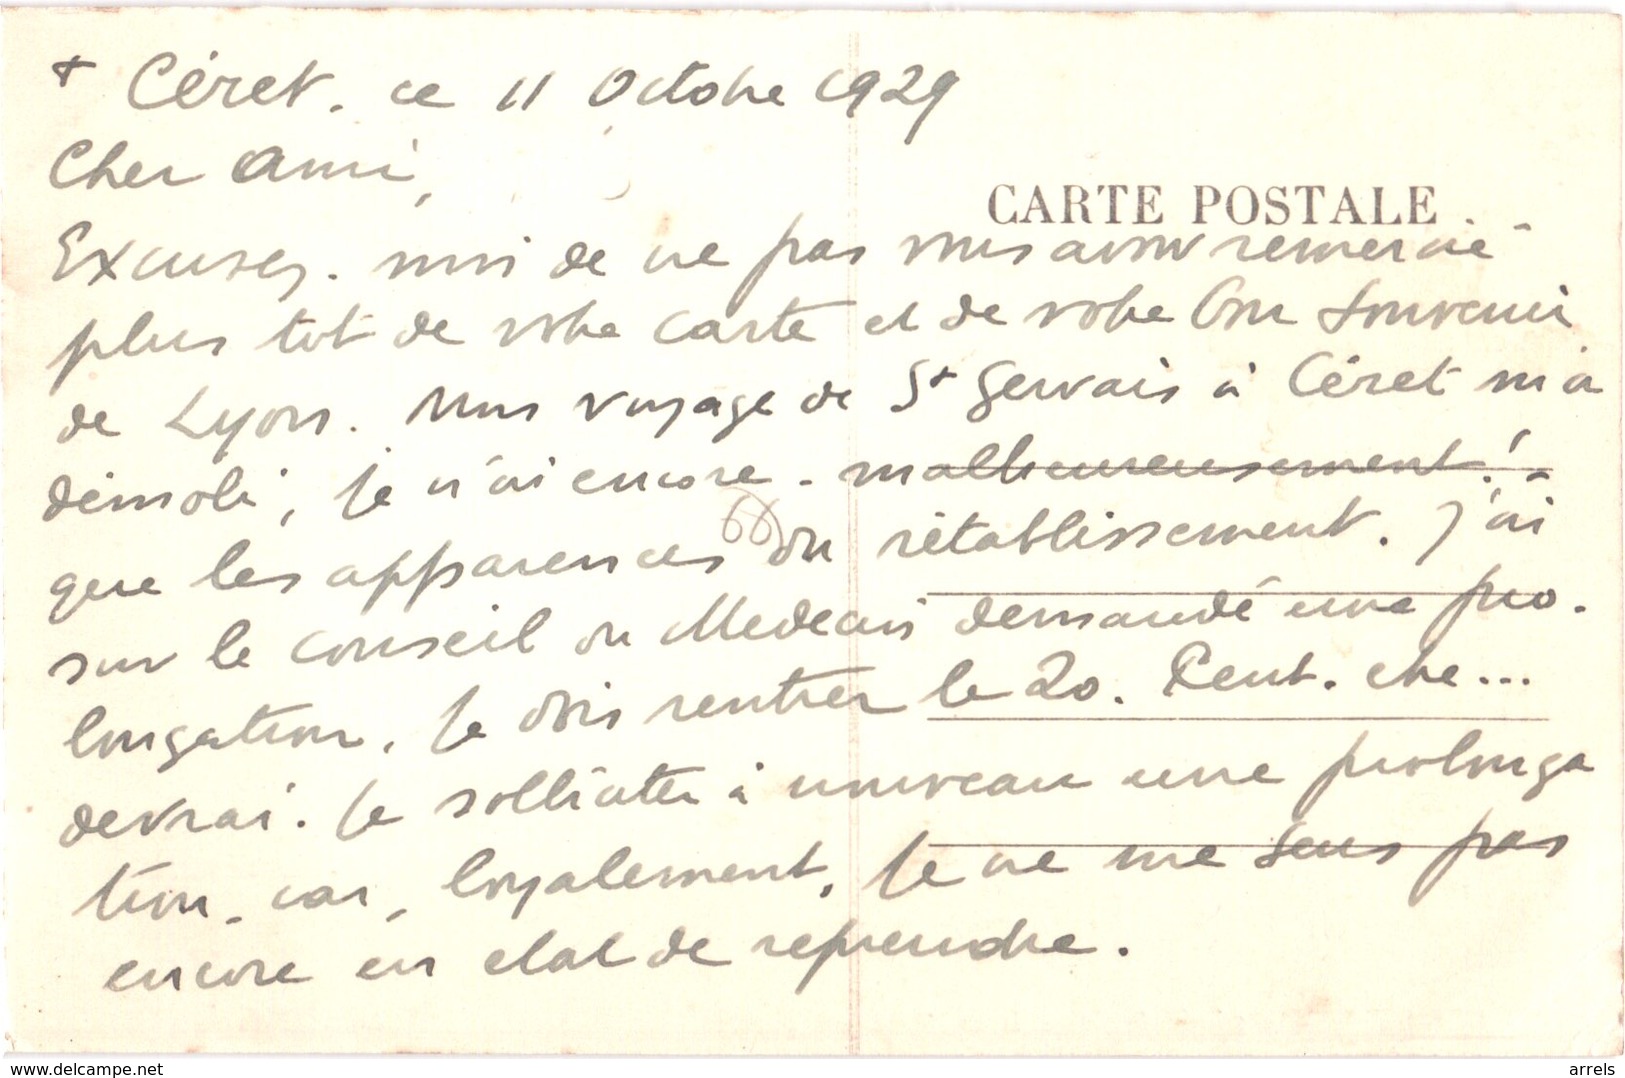 + Céret. ce 11 Octobre 1929
Cher Ami,
CARTE POSTALE
Excusez-moi de ne pas vous avoir remercié
plus tôt de votre carte et de votre bon souvenir
de Lyon. Mon voyage de St Gervais à Céret m'a
démoli, je n'ai encore - malheureusement! -
que les apparences du rétablissement. J'ai
sur le conseil du Medecin demandé une pro-
longation, je dois rentrer le 20. Peut-etre...
devrai-je solliciter à nouveau une prolonga
tion - car, loyalement, je ne me sens pas
encore en etat de reprendre.
delcampe.net
arrels